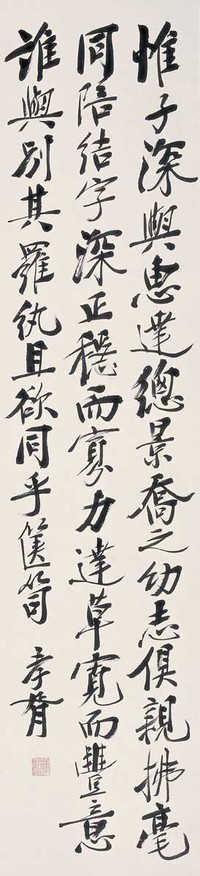 惟子深與惠達總景喬之幼志俱親拂毫
同陪結字深正穩而寡力達草寬而豐意
誰與別其羅紈且欲同乎篋笥 孝胥